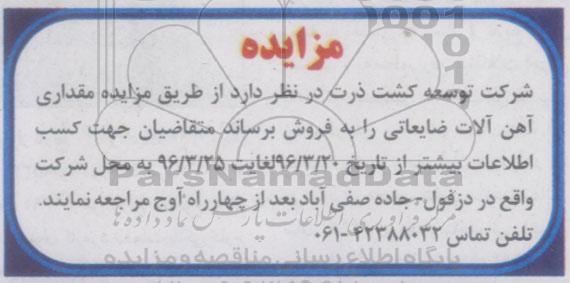 مزایده
شرکت توسعه کشت ذرت در نظر دارد از طریق مزایده مقداری
آهن آلات ضایعاتی را به فروش برساند متقاضیان جهت کسب
اطلاعات بیشتر از تاریخ ۹۶/۳/۲۰لغایت ۹۶/۳/۲۵ به محل شرکت
واقع در دزفول-جاده صفی آباد بعد از چهارراه آوج مراجعه نمایند.
تلفن تماس ۴۲۳۸۸۰۳۲-۰۶۱
ParsNamadData
پایگاه اطلاع رسانی مناقصه و مزایده